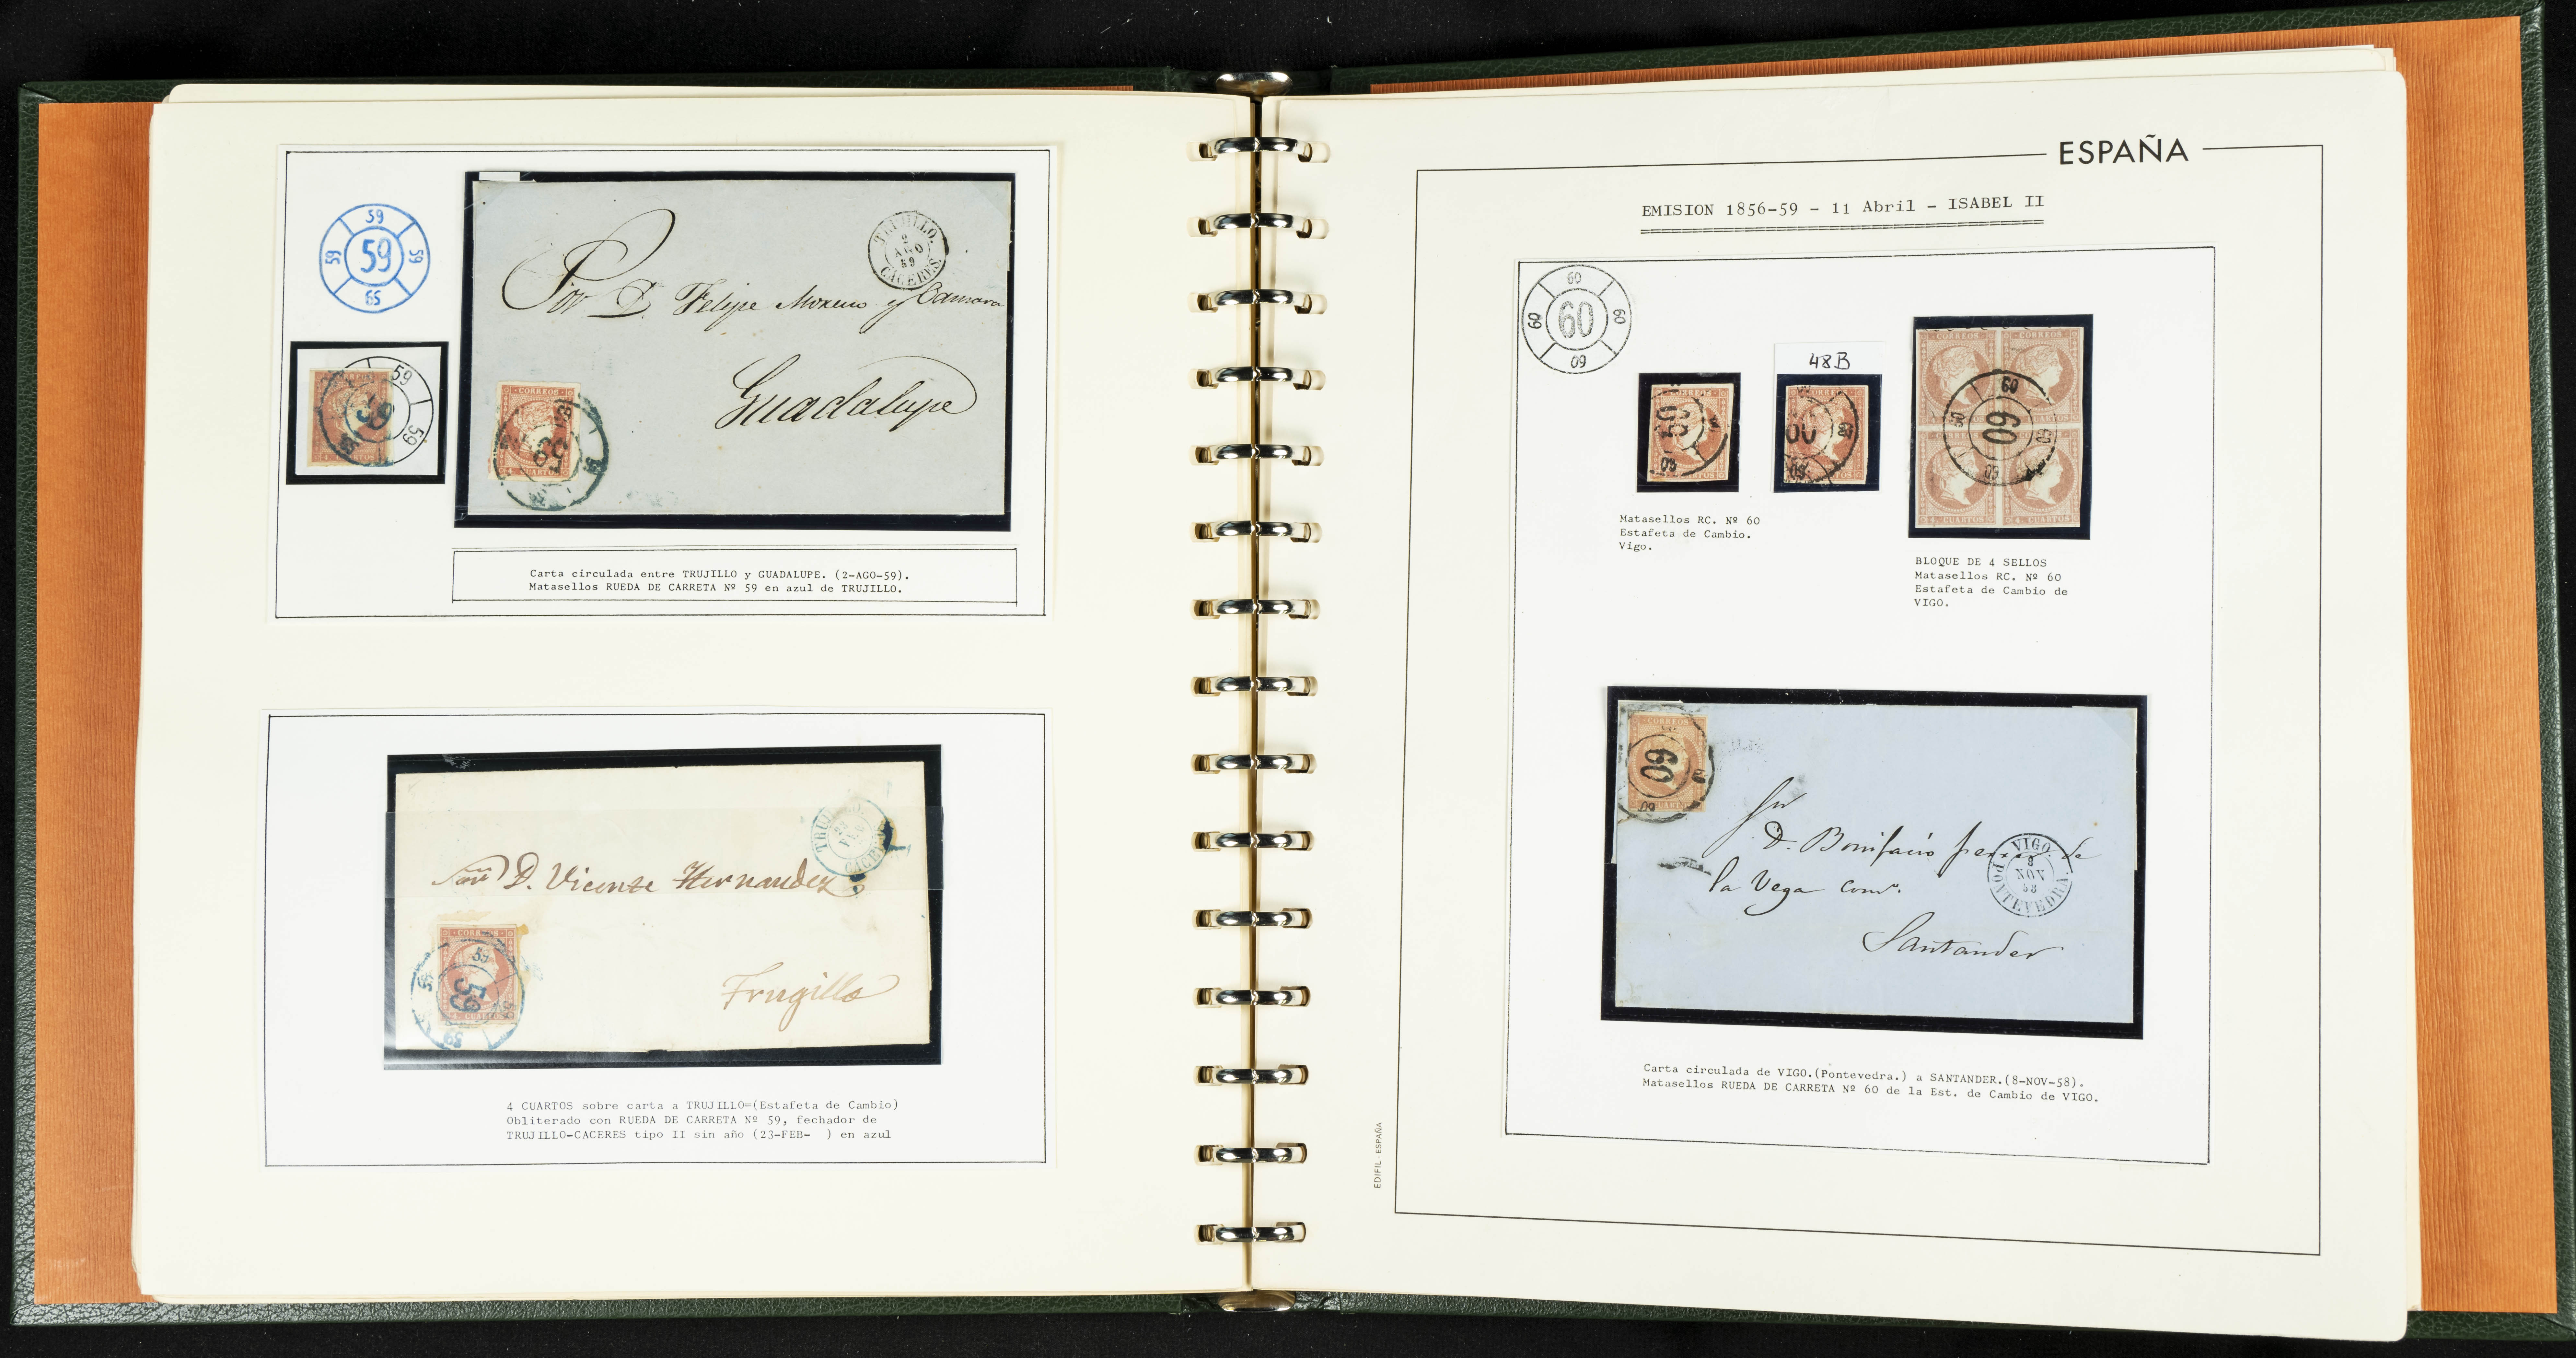 59
59
59
59
65
59
59
TRUJILLO.
2
AGO
59
CACERES.
D. Felipe Moreno y Camara
Guadalupe
CORREOS
CUARTOS
Carta circulada entre TRUJILLO y GUADALUPE. (2-AGO-59).
Matasellos RUEDA DE CARRETA Nº 59 en azul de TRUJILLO.
D. Vicente Hernandez
Trugillo
CORREOS
59
59
59
4 CUARTOS sobre carta a TRUJILLO=(Estafeta de Cambio)
Obliterado con RUEDA DE CARRETA Nº 59, fechador de
TRUJILLO-CACERES tipo II sin año (23-FEB-  ) en azul
ESPAÑA
EMISION 1856-59 - 11 Abril - ISABEL II
60
60
60
60
60
48B
60
60
CORREOS
CORREOS
60
60
60
60
60
CUARTOS
CUARTOS
Matasellos RC. Nº 60
Estafeta de Cambio.
Vigo.
BLOQUE DE 4 SELLOS
Matasellos RC. Nº 60
Estafeta de Cambio de
VIGO.
CORREOS
60
60
D. Bonifacio de
la Vega
Santander
VIGO.
8
NOV
58
PONTEVEDRA.
Carta circulada de VIGO.(Pontevedra.) a SANTANDER.(8-NOV-58).
Matasellos RUEDA DE CARRETA Nº 60 de la Est. de Cambio de VIGO.
EDIFIL - ESPAÑA